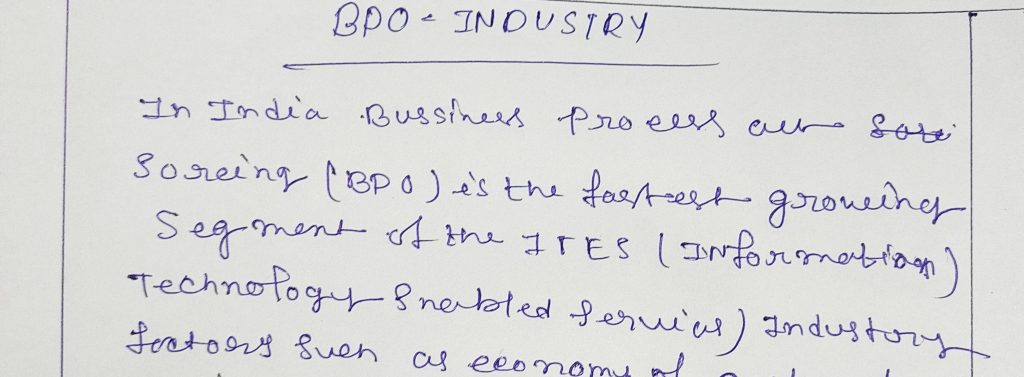 BPO - INDUSTRY
In India Bussiness Process out
Sorcing (BPO) is the fastest growing
Segment of the ITES (Information)
Technology Enabled Services) Industry
factors such as economy of